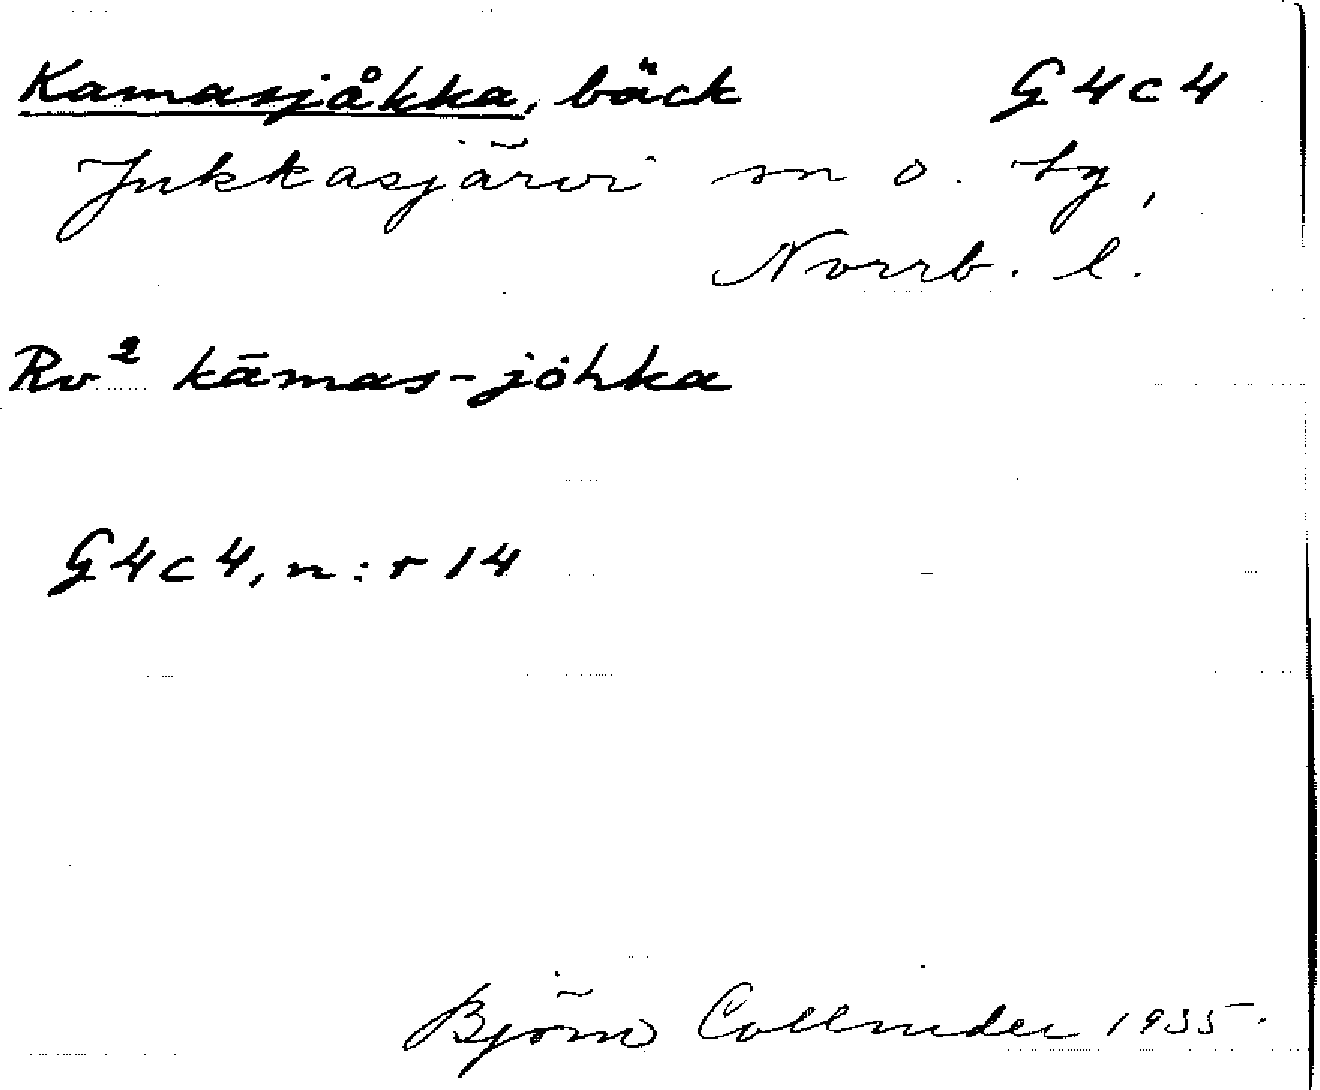 Kamasjåkka, bäck G4c4
Jukkasjärvi sn o. tg,
Norrb. l.
Rv² kāmas-jȯhka
G4c4, n:r 14
Björn Collinder 1935.